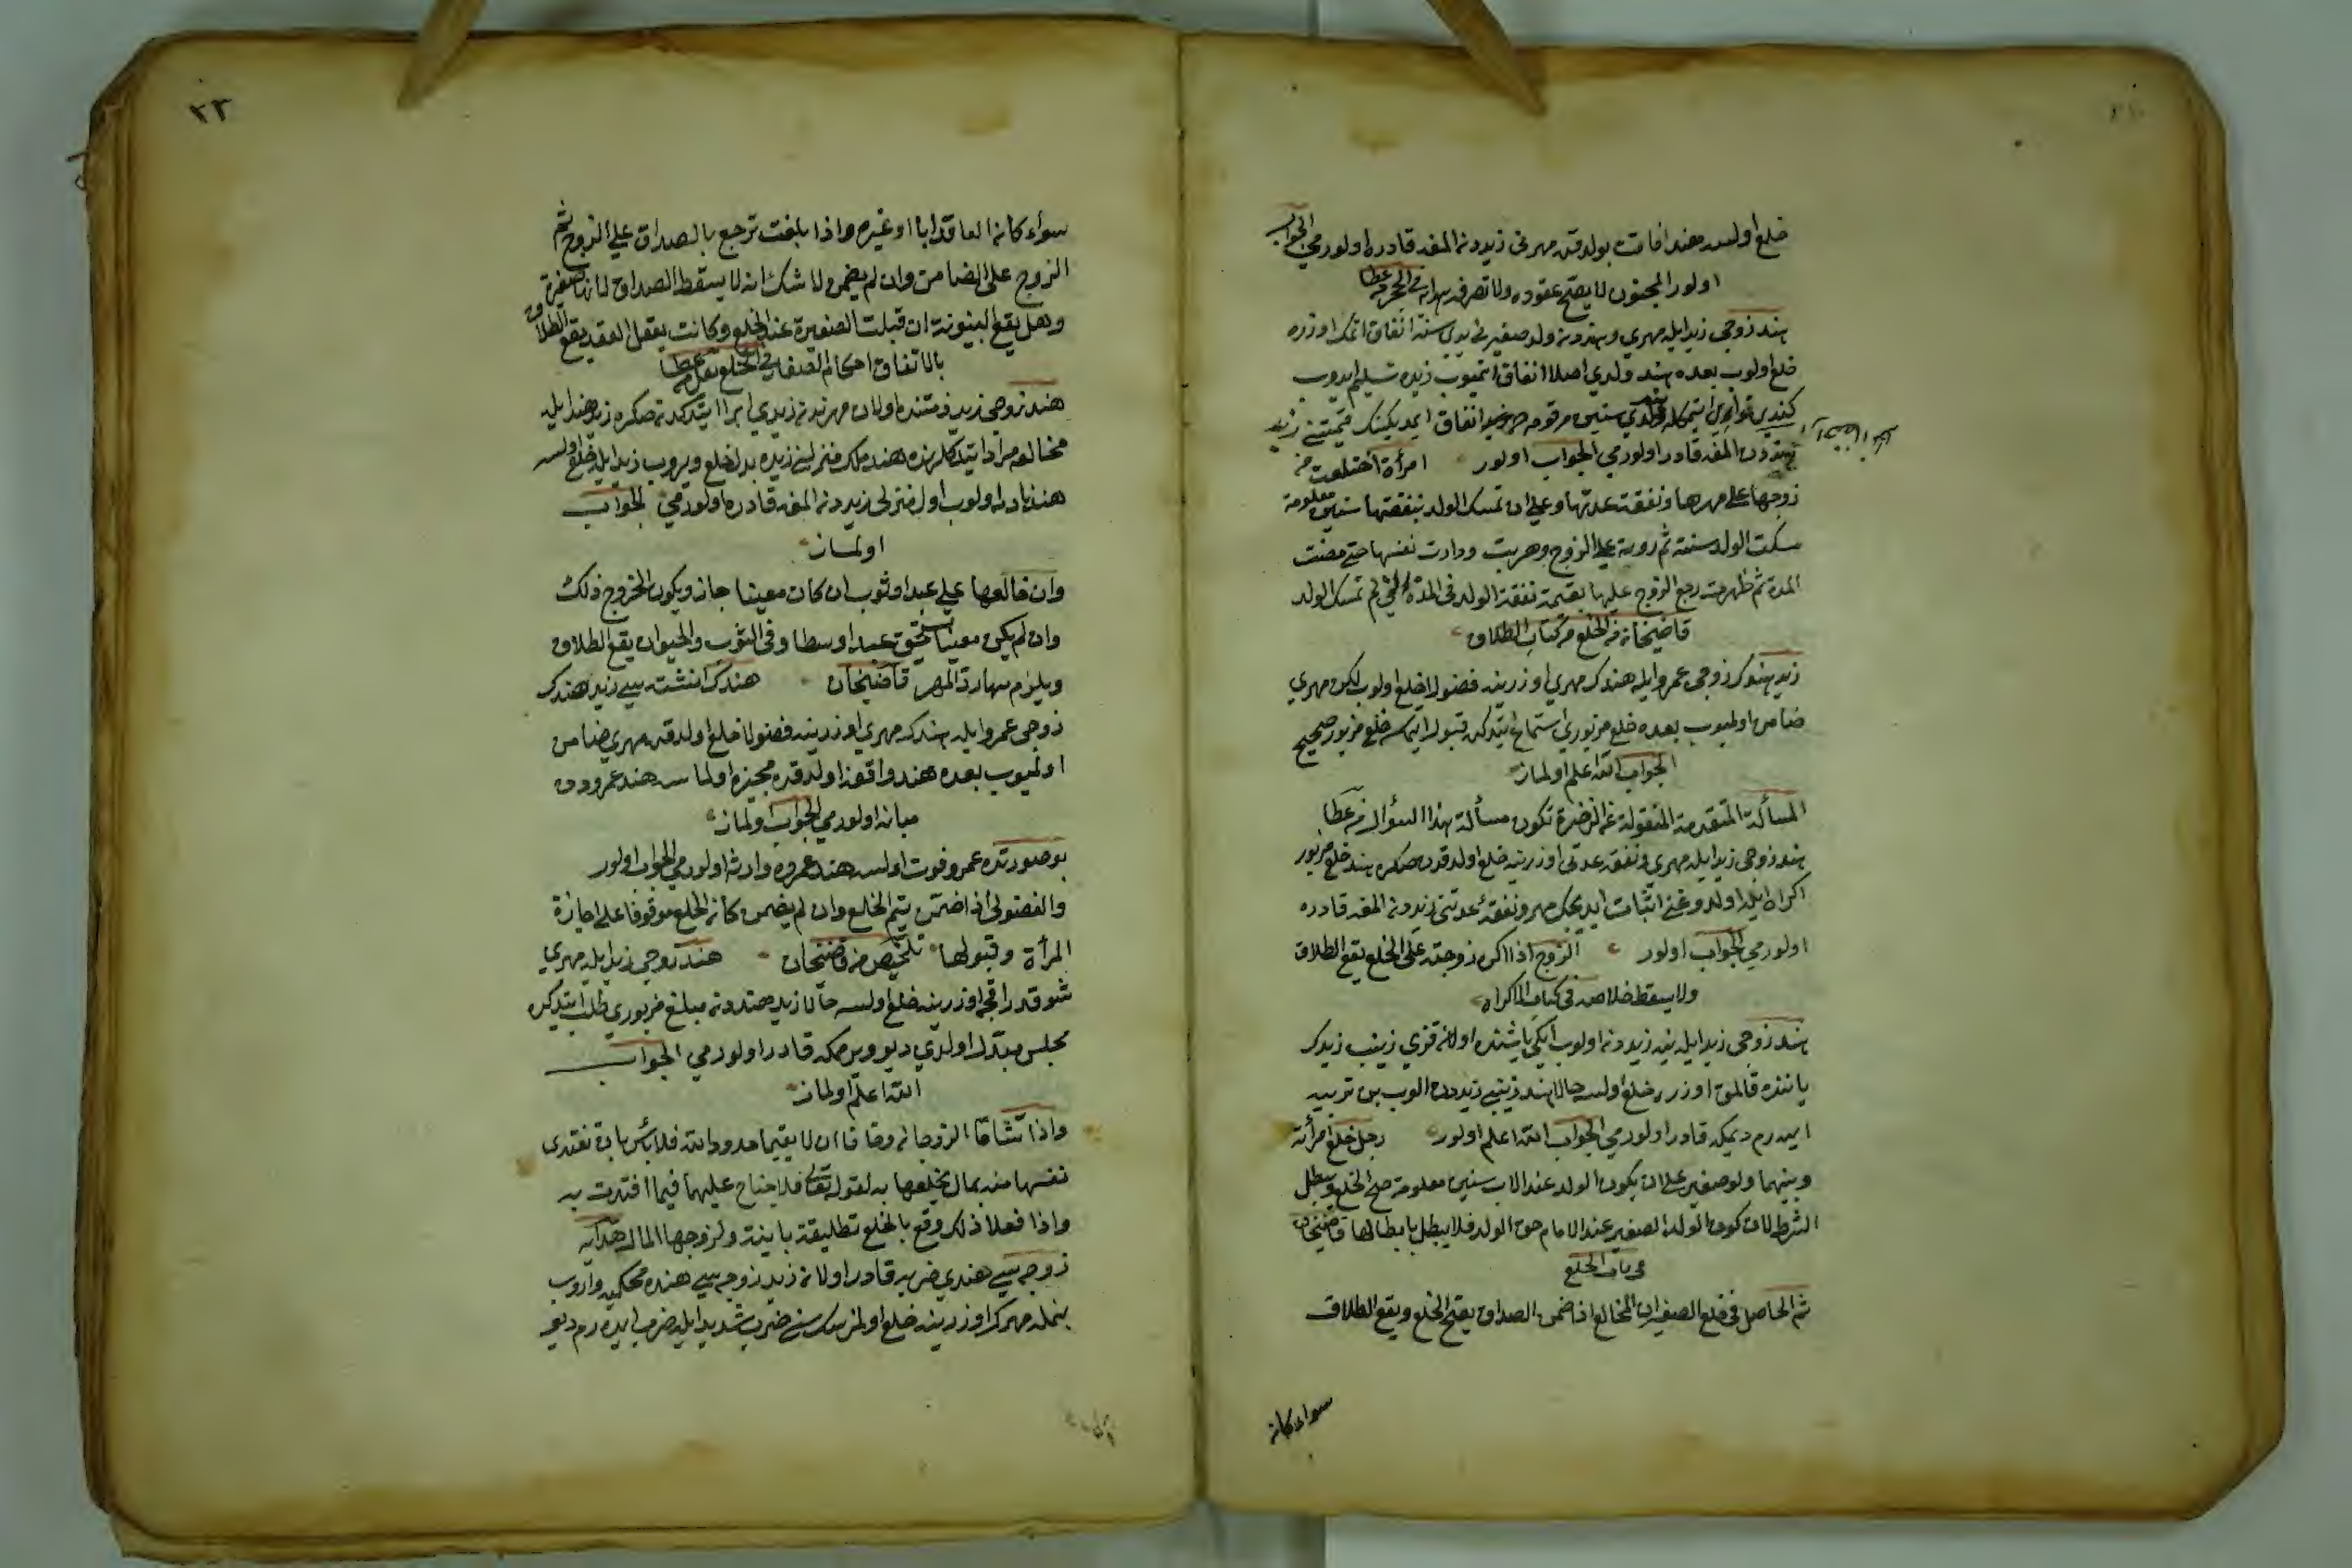 خلع اولسه هند افاقت بولدقده مهرنی زیددن المغه قادره اولورمی الجواب
اولور المجنون لا یصح عقوده ولا تصرفه هدایه فی الحجر عطا
هند زوجی زید ایله مهری وهنددن ولد صغیرنی یدی سنة انفاق اتمک اوزره
خلع اولوب بعده هند ولدی اصلا انفاق ایتمیوب زیده تسلیم ایدوب
کندی ولدی سنین مرقومه انفاق ایدیکینک قیمتنی زید
هنددن المغه قادر اولورمی الجواب اولور امرأة اختلعت من
زوجها علی مهرها ونفقت عدتها وعلی ان تمسک الولد بنفقتها سنین معلومة
سکت الولد سنة ثم ردته علی الزوج وهربت ودارت نفسها حتی مضت
المدة ثم ظهرت رجع الزوج علیها بقیمة نفقة الولد فی المدة التی لم تمسک الولد
قاضیخان فی الخلع من کتاب الطلاق
زید هندک زوجی عمرو ایله هندک مهری اوزرینه فضولا خلع اولوب لکن مهری
ضامن اولمیوب بعده خلع مزبوری استماع ایتدکده قبول ایتمسه خلع مزبور صحیح
الجواب الله اعلم اولماز
المسألة المتقدمة المنقولة عن الذخیرة تکون مسألة هذا السؤال عطا
هند زوجی زید ایله مهری ونفقه عدتی اوزرینه خلع اولدقدن صکره هند خلع مزبور
اکراه ایله اولدوغنی اثبات ایدیجک مهر ونفقهٔ عدتنی زیددن المغه قادره
اولورمی الجواب اولور الزوج اذا اکره زوجته علی الخلع یقع الطلاق
ولا یسقط خلاصه فی کتاب الاکراه
هند زوجی زید ایله ینه زیددن اولوب ایکی یاشنده اولان قزی زینب زیدک
یاننده قالمق اوزره خلع اولسه حالا هند زینبی زیددن الوب بن تربیه
ایدرم دیمکه قادر اولورمی الجواب الله اعلم اولور رجل خلع امرأته
وبینهما ولد صغیر علی ان یکون الولد عند الاب سنین معلومة صح الخلع ویبطل
الشرط لان کون الولد الصغیر عند الام حق الولد فلا یبطل بابطالها قاضیخان
فی باب الخلع
ثم الحاصل فی خلع الصغیر ان المخالع اذا ضمن الصداق یصح الخلع ویقع الطلاق
سواء کان
٢٣
سواء کان العاقد ابا او غیره واذا بلغت ترجع بالصداق علی الزوج ثم
الزوج علی الضامن وان لم یضمن ولا شک انه لا یسقط الصداق لانها صغیرة
وهل یقع البینونة ان قبلت الصغیرة عند الخلع وکانت یعقل العقد یقع الطلاق
بالاتفاق احکام الصغار فی الخلع نقل عطا
هند زوجی زید ذمتنده اولان مهرندن زیدی ابرا ایتدکدن صکره زید هند ایله
مخالعه مراد ایتدکلرنده هند ملک منزلینی زیده بدل خلع ویروب زید ایله خلع اولسه
هند نادمه اولوب اول منزلی زیددن المغه قادره اولورمی الجواب
اولماز
وان خالعها علی عبد او ثوب ان کان معینا جاز ویکون للزوج ذلک
وان لم یکن معینا یستحق عبدا وسطا وفی الثوب والحیوان یقع الطلاق
ویلزم رد المهر قاضیخان هندک زید هندک
زوجی عمرو ایله هندک مهری اوزرینه فضولا خلع اولدقده مهری ضامن
اولمیوب بعده هند واقفه اولدقده مجیزه اولماسه هند عمرودن
مبانه اولورمی الجواب اولماز
بو صورتده عمرو فوت اولسه هند عمروه وارثه اولورمی الجواب اولور
والفضولی اذا ضمن یتم الخلع وان لم یضمن کان الخلع موقوفا علی اجازة
المرأة وقبولها تلخیص من قاضیخان هند زوجی زید ایله مهری
شو قدر اقچه اوزرینه خلع اولسه حالا زید هنددن مبلغ مزبوری طلب ایتدکده
مجلس مبدل اولدی دیو ویرممکه قادر اولورمی الجواب
الله اعلم اولماز
واذا تشاقا الزوجان وخافا ان لا یقیما حدود الله فلا بأس بان تفتدی
نفسها منه بمال یخلعها به لقوله تعالی فلا جناح علیهما فیما افتدت به
واذا فعلا ذلک وقع بالخلع تطلیقة باینة ولزمها المال هدایه
زوجه سی هندی ضربه قادر اولان زید زوجه سی هنده محکمه یه واروب
بنمله مهرک اوزرینه خلع اولمزسک سنی ضرب شدید ایله ضرب ایدرم دیو